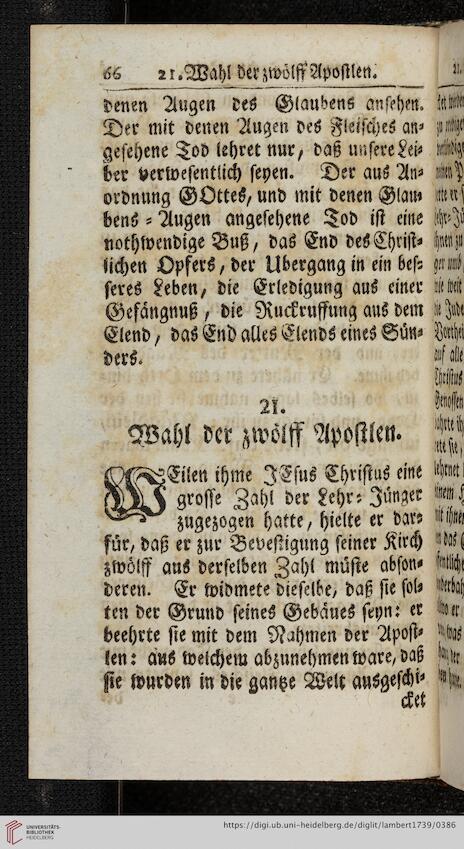 66 21. Wahl der zwölff Apostlen.
denen Augen des Glaubens ansehen.
Der mit denen Augen des Fleisches an-
gesehene Tod lehret nur, daß unsere Lei-
ber verwesentlich seyen. Der aus An-
ordnung GOttes, und mit denen Glau-
bens-Augen angesehene Tod ist eine
nothwendige Buß, das End des Christ-
lichen Opfers, der Ubergang in ein bes-
seres Leben, die Erledigung aus einer
Gefängnuß, die Ruckruffung aus dem
Elend, das End alles Elends eines Sün-
ders.
21.
Wahl der zwölff Apostlen.
WEilen ihme JEsus Christus eine
grosse Zahl der Lehr-Jünger
zugezogen hatte, hielte er dar-
für, daß er zur Bevestigung seiner Kirch
zwölff aus derselben Zahl müste abson-
deren. Er widmete dieselbe, daß sie sol-
ten der Grund seines Gebäues seyn: er
beehrte sie mit dem Nahmen der Apost-
len: aus welchem abzunehmen ware, daß
sie wurden in die gantze Welt ausgeschi-
cket
UNIVERSITÄTS-
BIBLIOTHEK
HEIDELBERG
https://digi.ub.uni-heidelberg.de/diglit/lambert1739/0386